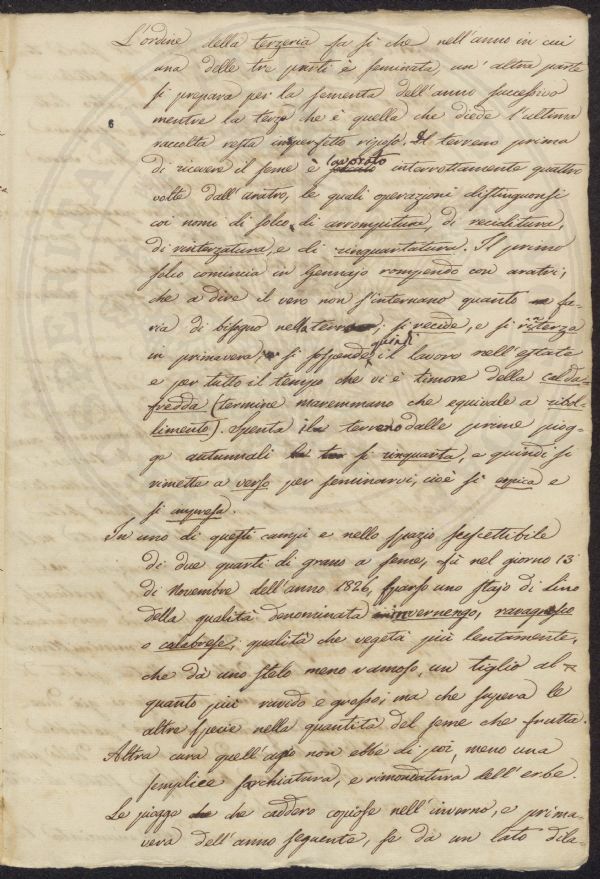 L'ordine della terzeria fa sì che nell'anno in cui
una delle tre parti è seminata, un'altra parte
si prepara per la sementa dell'anno successivo
mentre la terza che è quella che diede l'ultima
6
raccolta resta imperfetto riposo. Il terreno prima
di ricevere il seme è aroto interrottamente quattro
volte dall'aratro, le quali operazioni distinguonsi
coi nomi di solco, di arrompitura, di reciditura,
di rinterzatura, e di rinquartatura. Il primo
solco comincia in Gennajo rompendo con aratri,
che a dire il vero non s'internano quanto fa-
ria di bisogno nella terra; si recide, e si rinterza
in primavera; si sospende quindi il lavoro nell'estate
e per tutto il tempo che vi è timore della calda-
fredda (termine maremmano che equivale a ribol-
limento). Spenta il terreno dalle prime piog-
ge autunnali si rinquarta, e quindi si
rimette a verso per seminarvi, cioè si
si
In uno di questi campi e nello spazio suscettibile
di due quarti di grano a seme, fù nel giorno 13
di Novembre dell'anno 1826, sparso uno stajo di Lino
della qualità denominata invernengo, ravagnese
o calabrese; qualità che vegeta più lentamente,
che dà uno stelo meno ramoso, un tiglio al-
quanto più ruvido e grosso; ma che supera le
altre specie nella quantità del seme che frutta.
Altra cura quell'agio non ebbe di poi, meno una
semplice sarchiatura, e rimondatura dell'erbe.
Le piogge che caddero copiose nell'inverno, e prima-
vera dell'anno seguente, se da un lato dila-